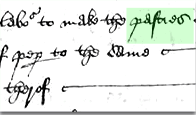 labor to make the pasties
f pep to the same
therof